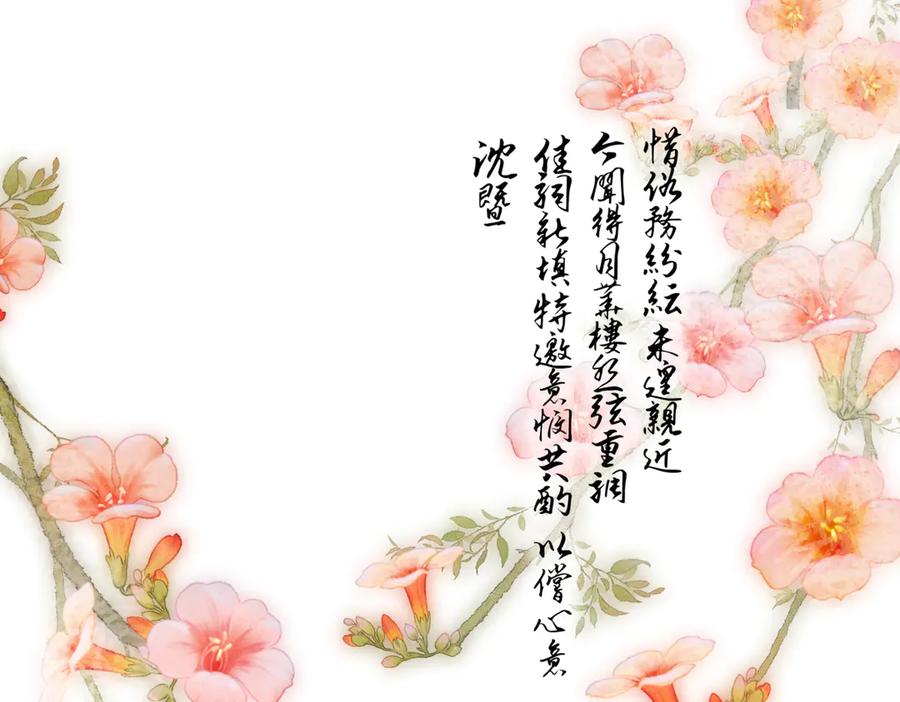 惜俗務紛紜未遑親近
今聞得月華樓丝弦重調
佳詞新填特邀意憫共酌 以償心意
沈暨